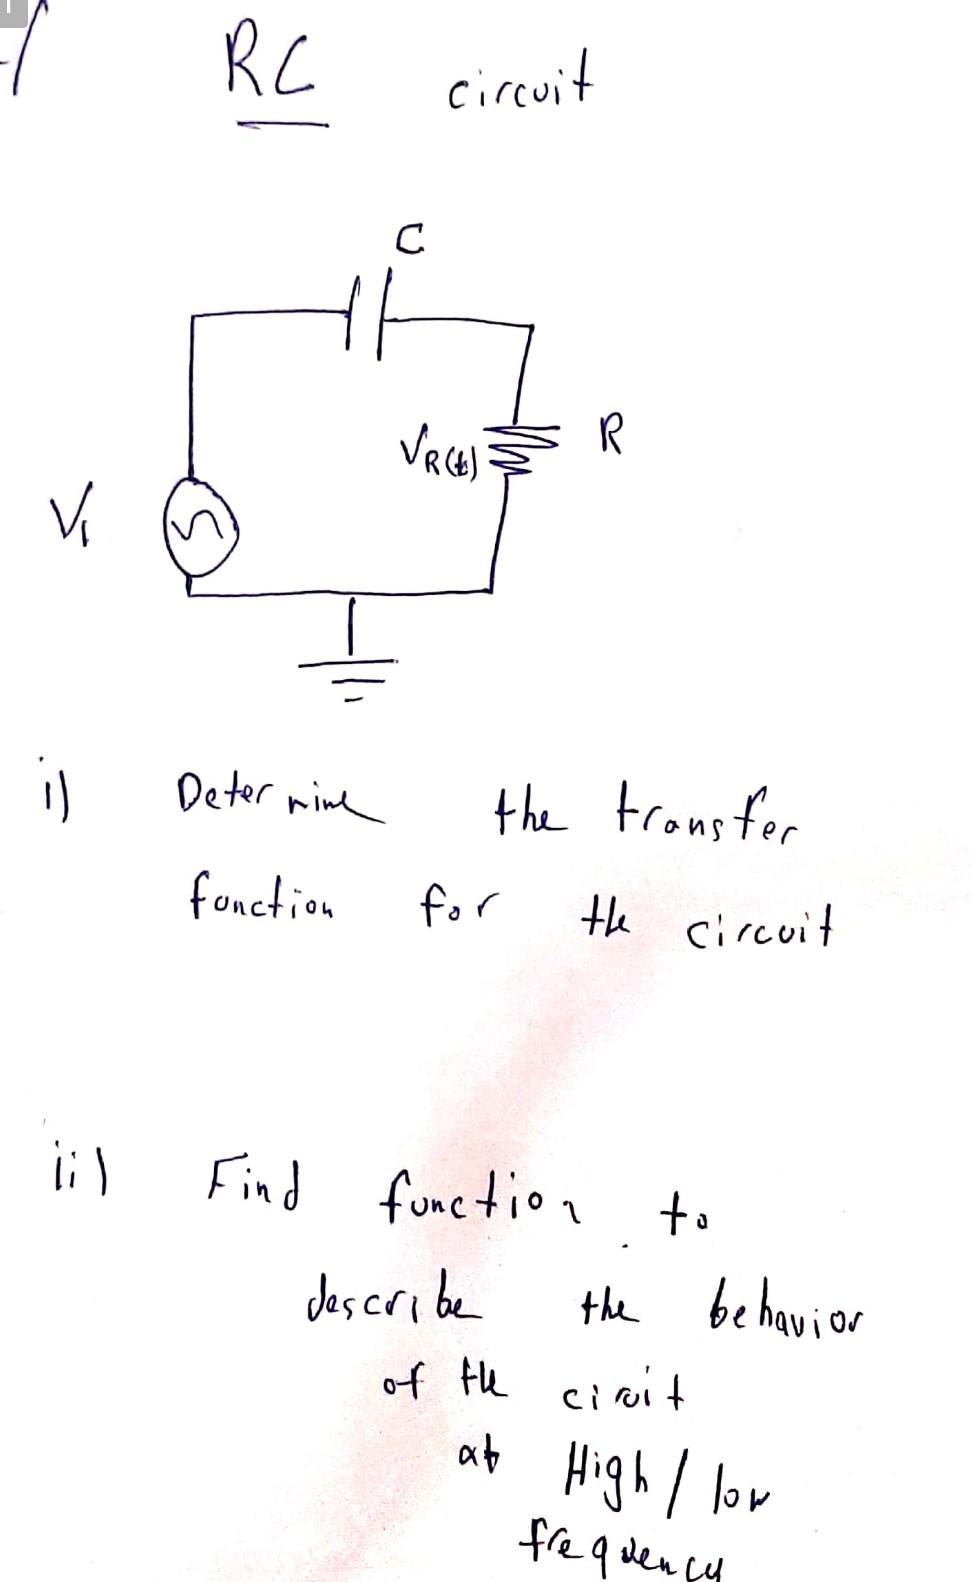 RC circuit
C
VR(t) R
V1
i) Determine the transfer
function for the circuit
ii) Find function to
describe the behavior
of the ciruit
at High / low
frequency